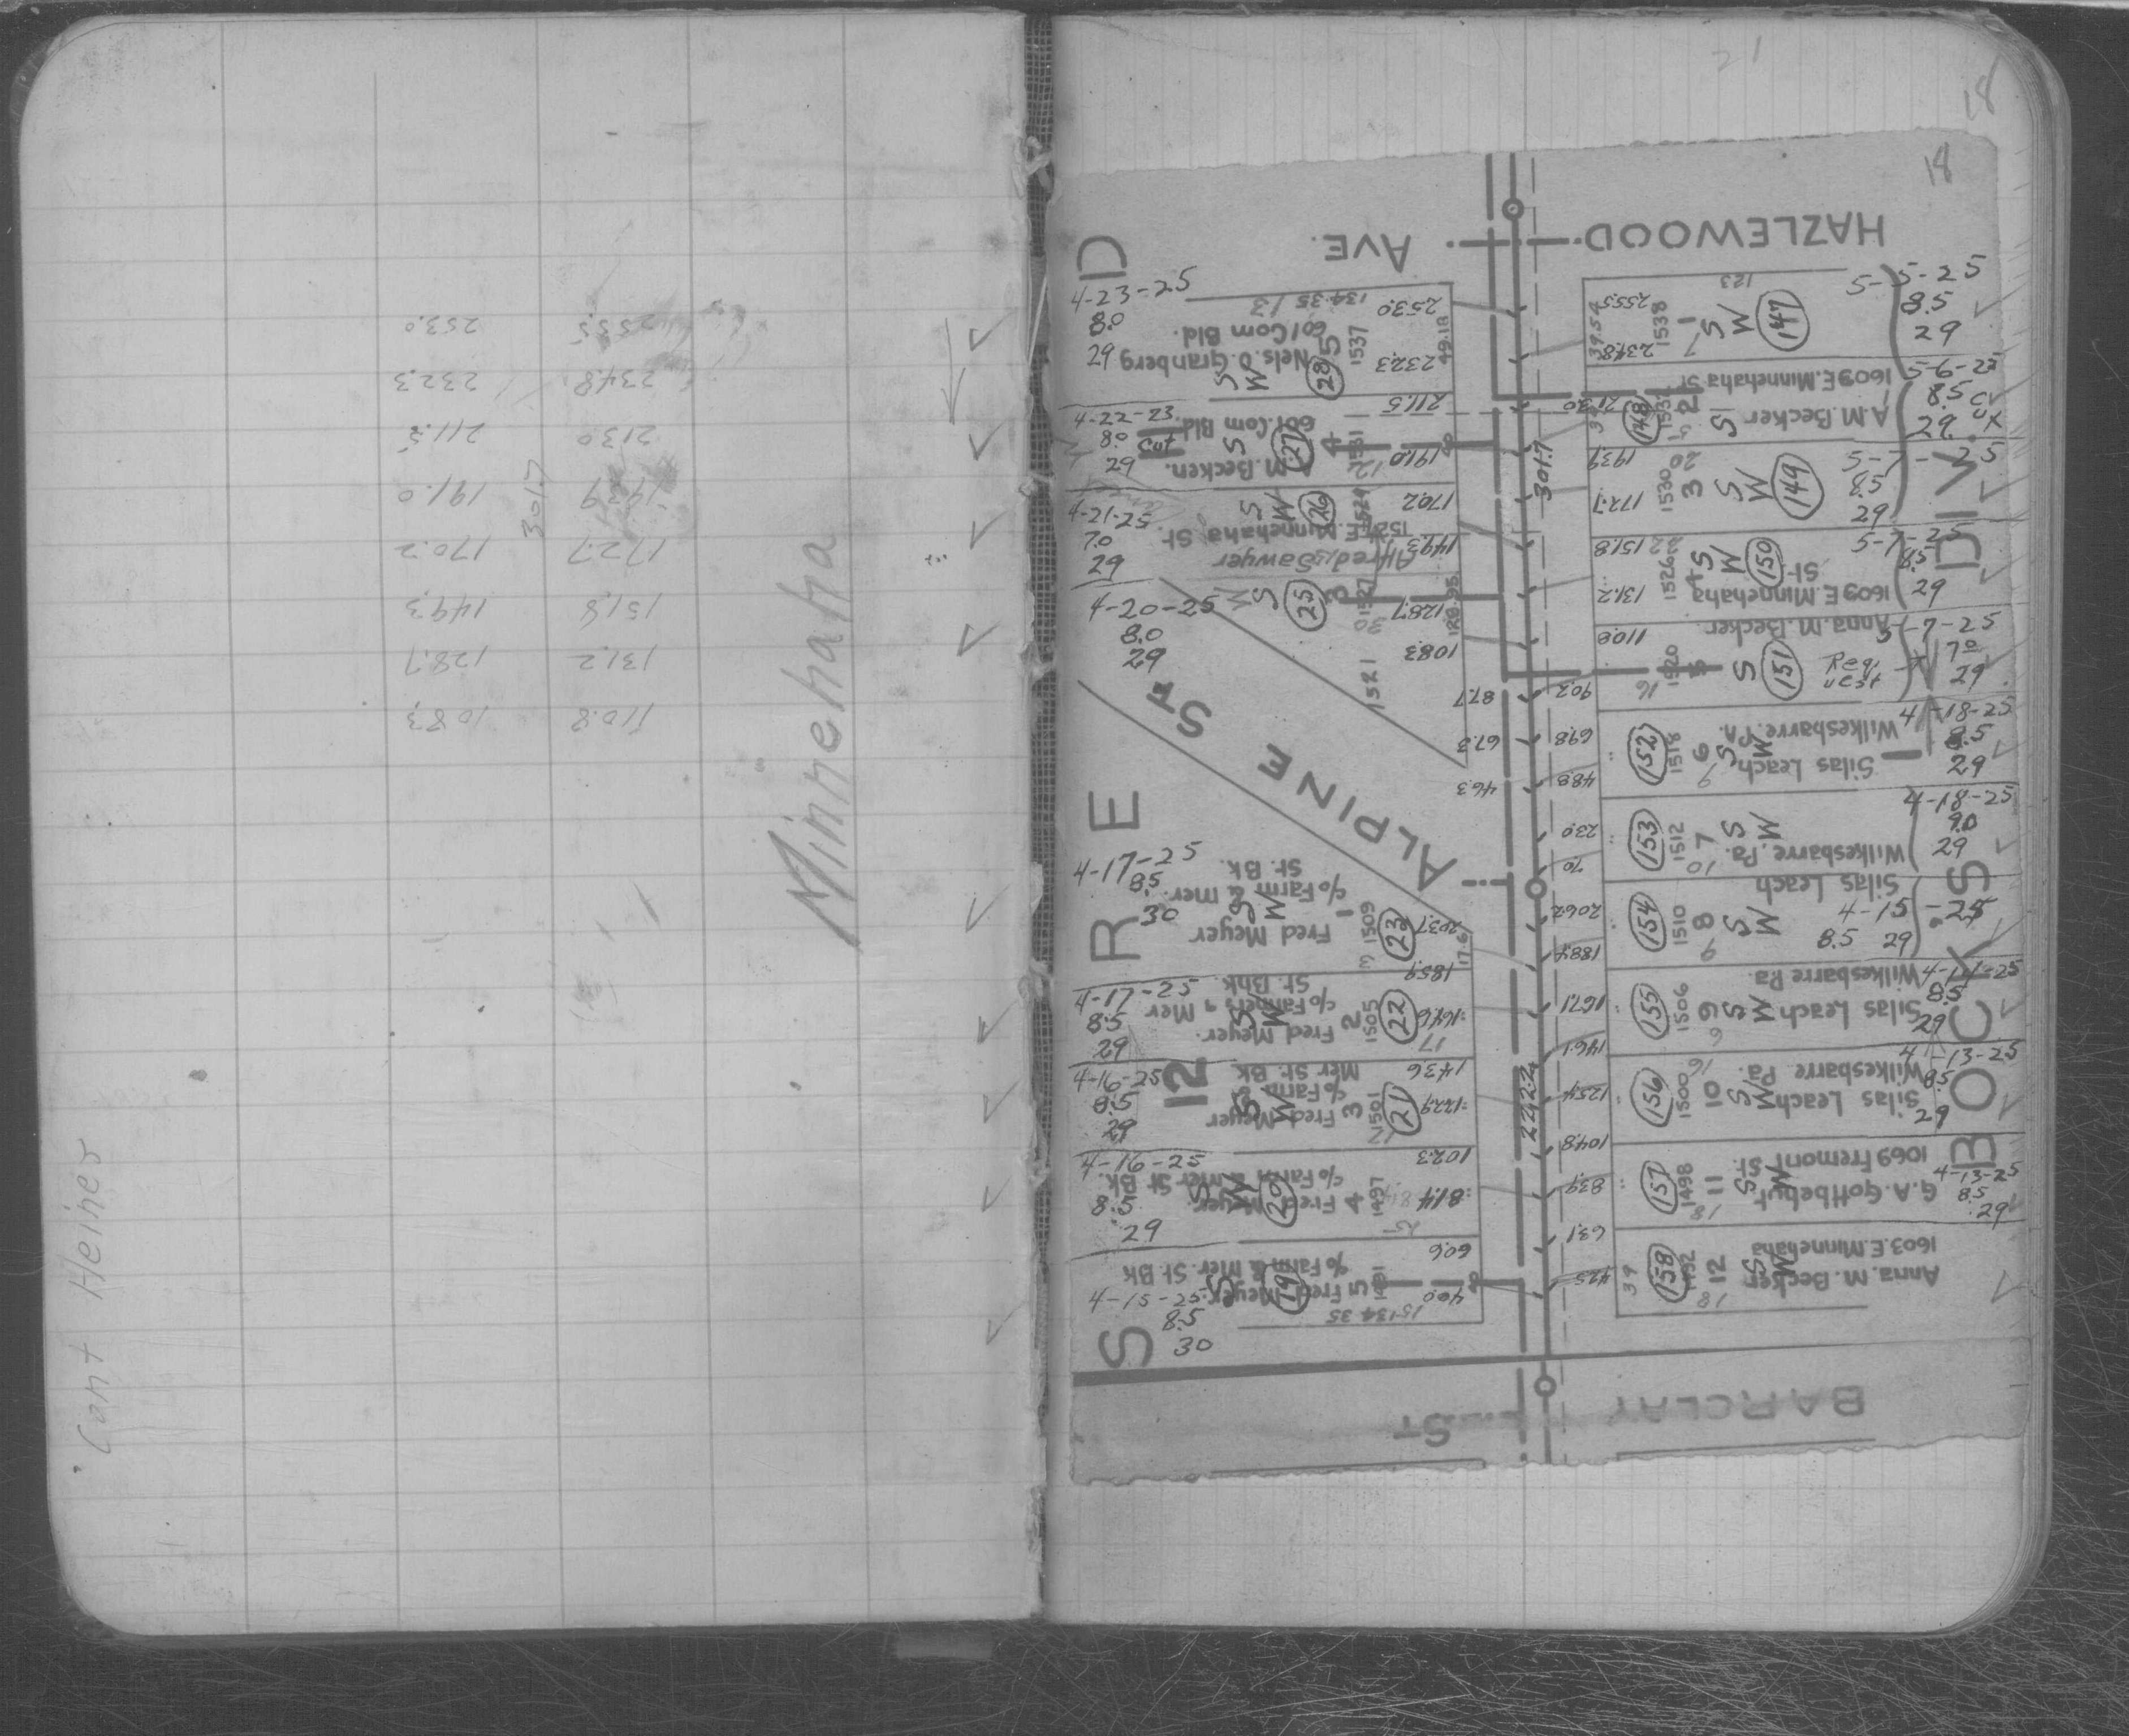 253.0 255.5
232.3 234.8
211.5 213.0
191.0 193.9
3017
170.2 172.7
149.3 151.8
128.7 131.2
108.3 110.8
Minnehaha
Cant Heiner
21
18
18
HAZLEWOOD AVE.
D
4-23-25
8.0
29
134.35 13
601 Com Bld.
Nels. O. Granberg
S
W
28
5
1537
253.0
232.3
49.18
4-22-23
8.0
Cut
29
601. Com Bld.
A. M. Becken.
S
27
4
1531
12
211.5
191.0
4-21-25
7.0
29
S
W
26
1524 E. Minnehaha St.
Alfred Sawyer
170.2
149.3
4-20-25
8.0
29
W
S
25
3
1527
30
128.7
120.95
108.3
1521
87.7
67.3
46.3
ALPINE ST
E
R
4-17-25
8.5
30
St. Bk
c/o Farm & Mer.
S
W
Fred Meyer
1
1509
3
23
203.7
17.6
185.9
4-17-25
8.5
29
St. Bhk
c/o Farmers & Mer
S
W
Fred Meyer.
2
1505
22
164.6
17
4-16-25
8.5
29
12
Mer St. Bk
c/o Farm &
S
W
Fred Meyer
3
1501
21
143.6
122.9
4-16-25
8.5
29
c/o Farm & Mer St Bk
S
W
Fred Meyer.
4
1497
20
102.3
81.4
15
4-15-25
8.5
30
c/o Farm & Mer. St Bk
S
Fred Meyer
5
1491
19
60.6
40.0
15 134.35
S
301.7
222.2
123
255.5
39.54
1538
1
7
S
W
147
234.8
5-5-25
8.5
29
1609 E. Minnehaha St
A. M. Becker
S
2
148
213.0
5-6-25
8.5
29
193.9
20
1530
3
S
W
149
172.7
5-7-25
8.5
29
151.8
22
1526
4
S
W
150
St
1609 E. Minnehaha
131.2
5-7-25
8.5
29
Anna. M. Becker
110.8
1520
5
S
151
16
90.2
5-7-25
7.0
29
69.8
Wilkesbarre. Pa.
Silas Leach
152
1518
6
9
S
W
48.8
4-18-25
8.5
29
23.0
153
1512
7
10
S
W
Wilkesbarre, Pa.
7.0
4-18-25
9.0
29
Silas Leach
206.2
154
1510
8
9
S
W
188.4
4-15-25
8.5 29
Wilkesbarre Pa.
Silas Leach
167.1
155
1506
9
6
S
W
146.1
4-14-25
8.5
29
Wilkesbarre Pa.
Silas Leach
125.4
156
1500
10
16
S
W
104.8
4-13-25
8.5
29
1069 Fremont St.
G. A. Gottbehut
83.9
157
1498
11
18
S
W
63.1
4-13-25
8.5
29
1603. E. Minnehaha
Anna. M. Becker
42.5
39
158
1492
12
18
S
W
BLOCK
DIVIS
BARCLAY ST